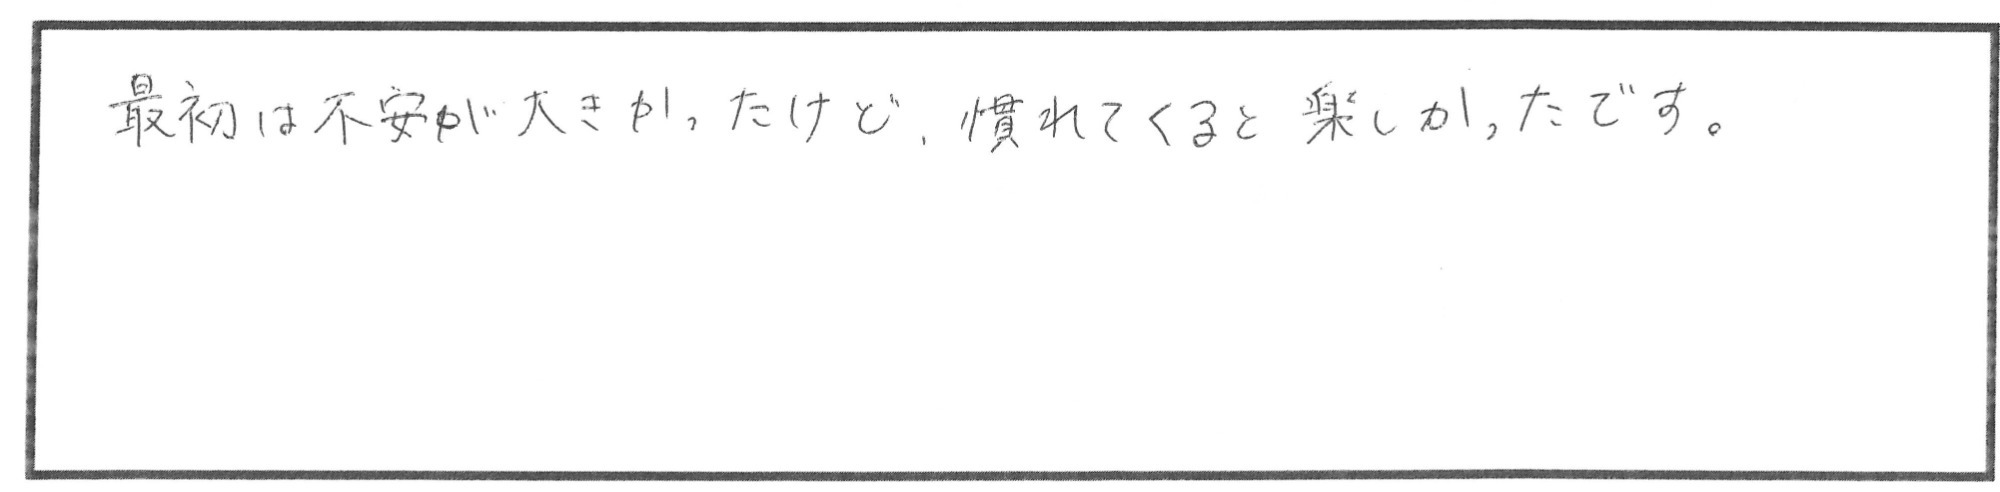 最初は不安が大きかったけど、慣れてくると楽しかったです。